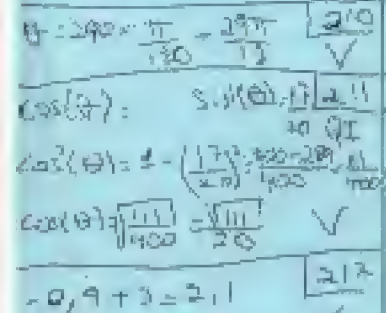 θ = 290 × π/180 = 29π/18 210
cos(θ) = sin(θ) = 17/20 211
QI
cos²(θ) = 1 - (17/20)² = 400-289/400 = 111/400
cos(θ) = √111/400 = √111/20
-0,9 + 3 = 2,1 212